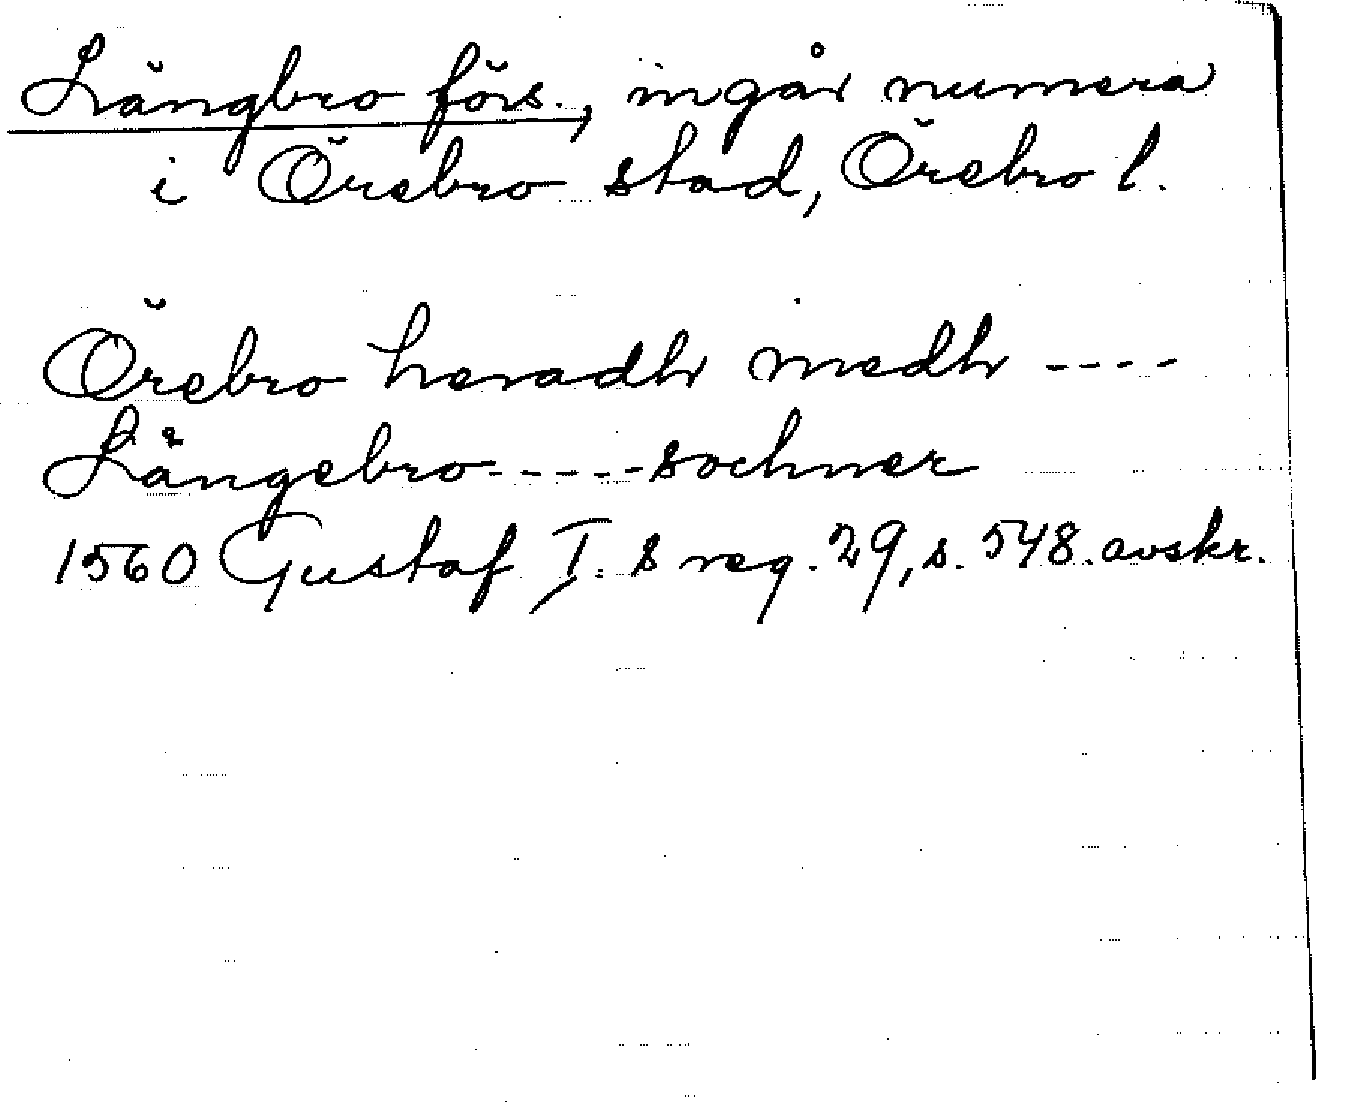 Långbro förs., ingår numera
i Örebro stad, Örebro l.
Örebro heradh medh ----
Långebro-----sochner
1560 Gustaf I:s reg. 29, s. 548. avskr.